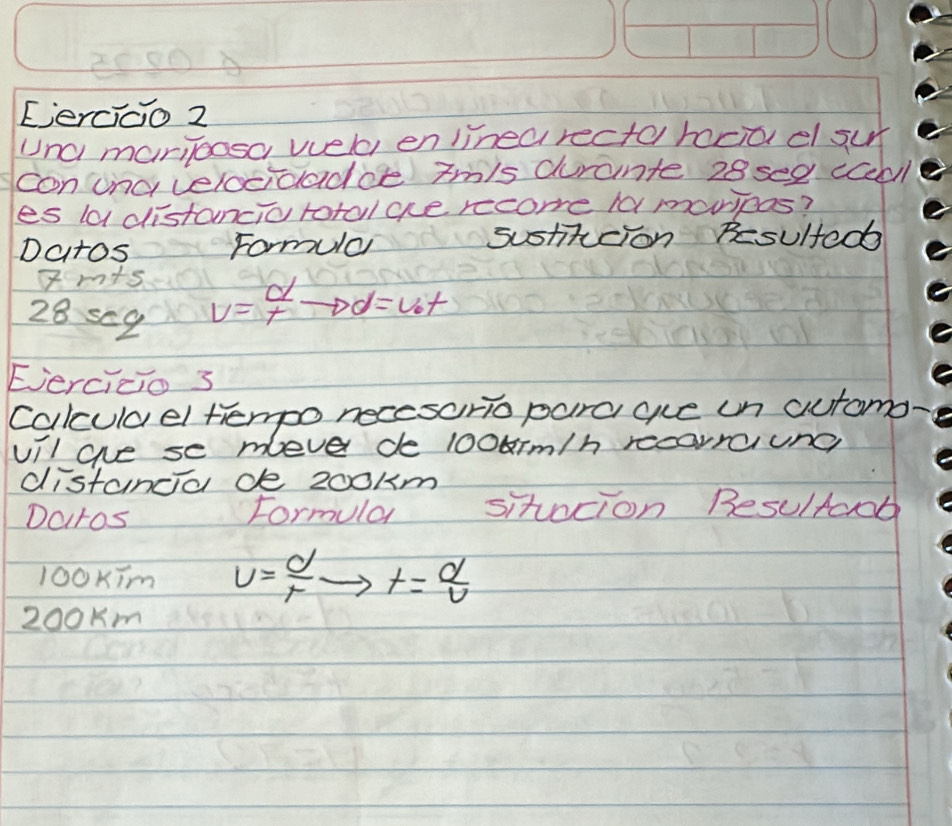 Ejercicio 2
una mariposa vuela en línea recta hacia el sur
con una velocidad de 7m/s durante 28 seg cual
es la distancia total que recorre la maripas?
Datos Formula Sustitucion Resultado
7 mts
28 seg v = d/t → d = v.t
Ejercicio 3
Calcula el tiempo necesario para que un automo-
vil que se mueve de 100km/h recorra una
distancia de 200km
Datos Formula situacion Resultado
100Kim v = d/t → t = d/v
200Km